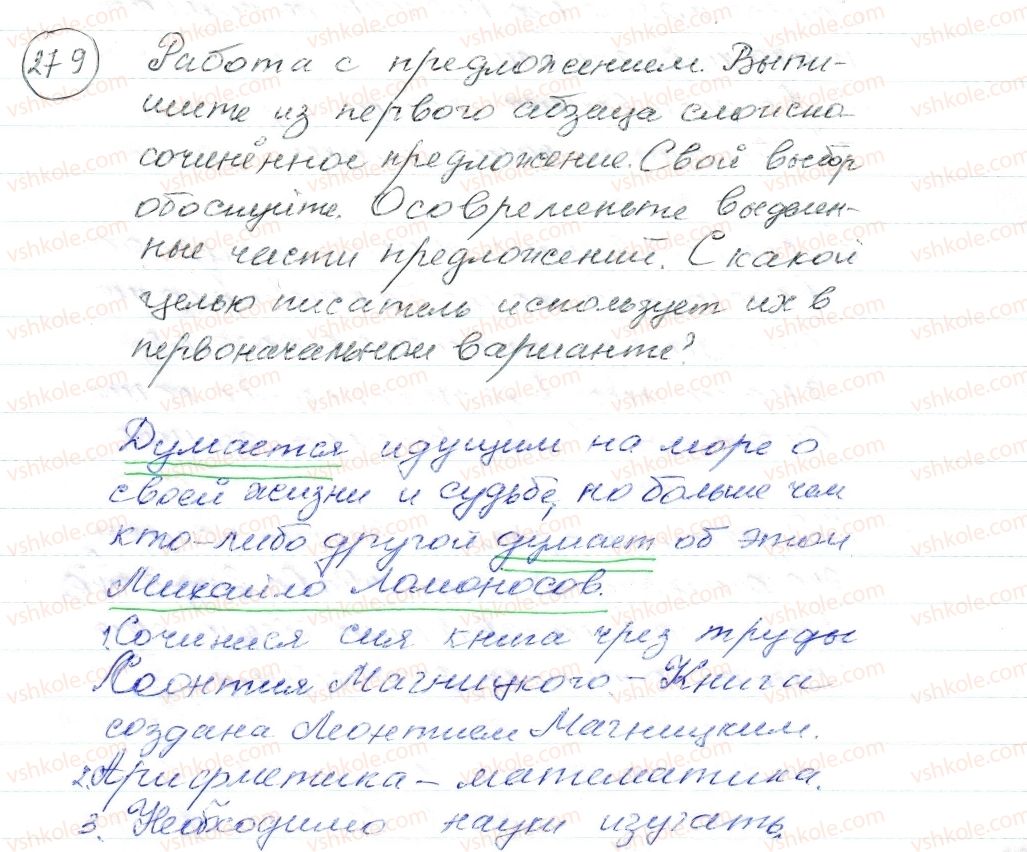 279
Работа с предложением. Выпи-
шите из первого абзаца сложно-
сочинённое предложение. Свой выбор
обоснуйте. Осовременьте выделен-
ные части предложений. С какой
целью писатель использует их в
первоначальном варианте?
Думается идущим на море о
своей жизни и судьбе, но больше чем
кто-либо другой думает об этом
Михайло Ломоносов.
1. Сочинися сия книга чрез труды
Леонтия Магницкого. – Книга
создана Леонтием Магницким.
2. Арифметика – математика.
3. Необходимо науки изучать.